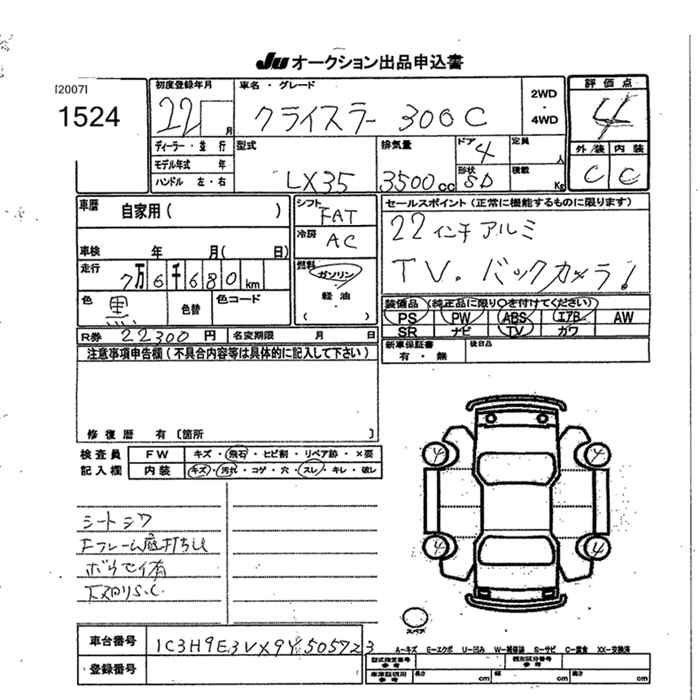 JU オークション出品申込書
[2007]
1524
初度登録年月
22 月
車名・グレード
クライスラー 300C
2WD
・
4WD
評価点
4
ディーラー・並行
モデル年式 年
ハンドル 左・右
型式
LX35
排気量
3500cc
ドア
4
形状
SD
定員 人
積載 Kg
外装 内装
C C
車歴 自家用( )
車検 年 月( 日)
走行
7万6千680km
色 黒 色替 色コード
R券 22300円 名変期限 月 日
シフト
FAT
冷房
AC
燃料
ガソリン
・
軽油
( )
セールスポイント(正常に機能するものに限ります)
22インチアルミ
TV. バックカメラ!
装備品(純正品に限り○を付けてください)
PS PW ABS エアB AW
SR ナビ TV カワ
新車保証書 後日品
有・無
注意事項申告欄(不具合内容等は具体的に記入して下さい)
修復歴 有〔箇所 〕
検査員 FW キズ・飛石・ヒビ割・リペア跡・×要
記入欄 内装 キズ・汚れ・コゲ・穴・スレ・キレ・破レ
シートシワ
Fフレーム底打ち
4 4
4 4
スペア
車台番号 1C3H9E3VX9Y505723
登録番号
A−キズ E−エクボ U−凹み W−補修跡 S−サビ C−腐食 XX−交換済
型式指定番号 類別区分番号
参考 参考
車庫証明用 長さ cm 幅 cm 高さ cm
参考